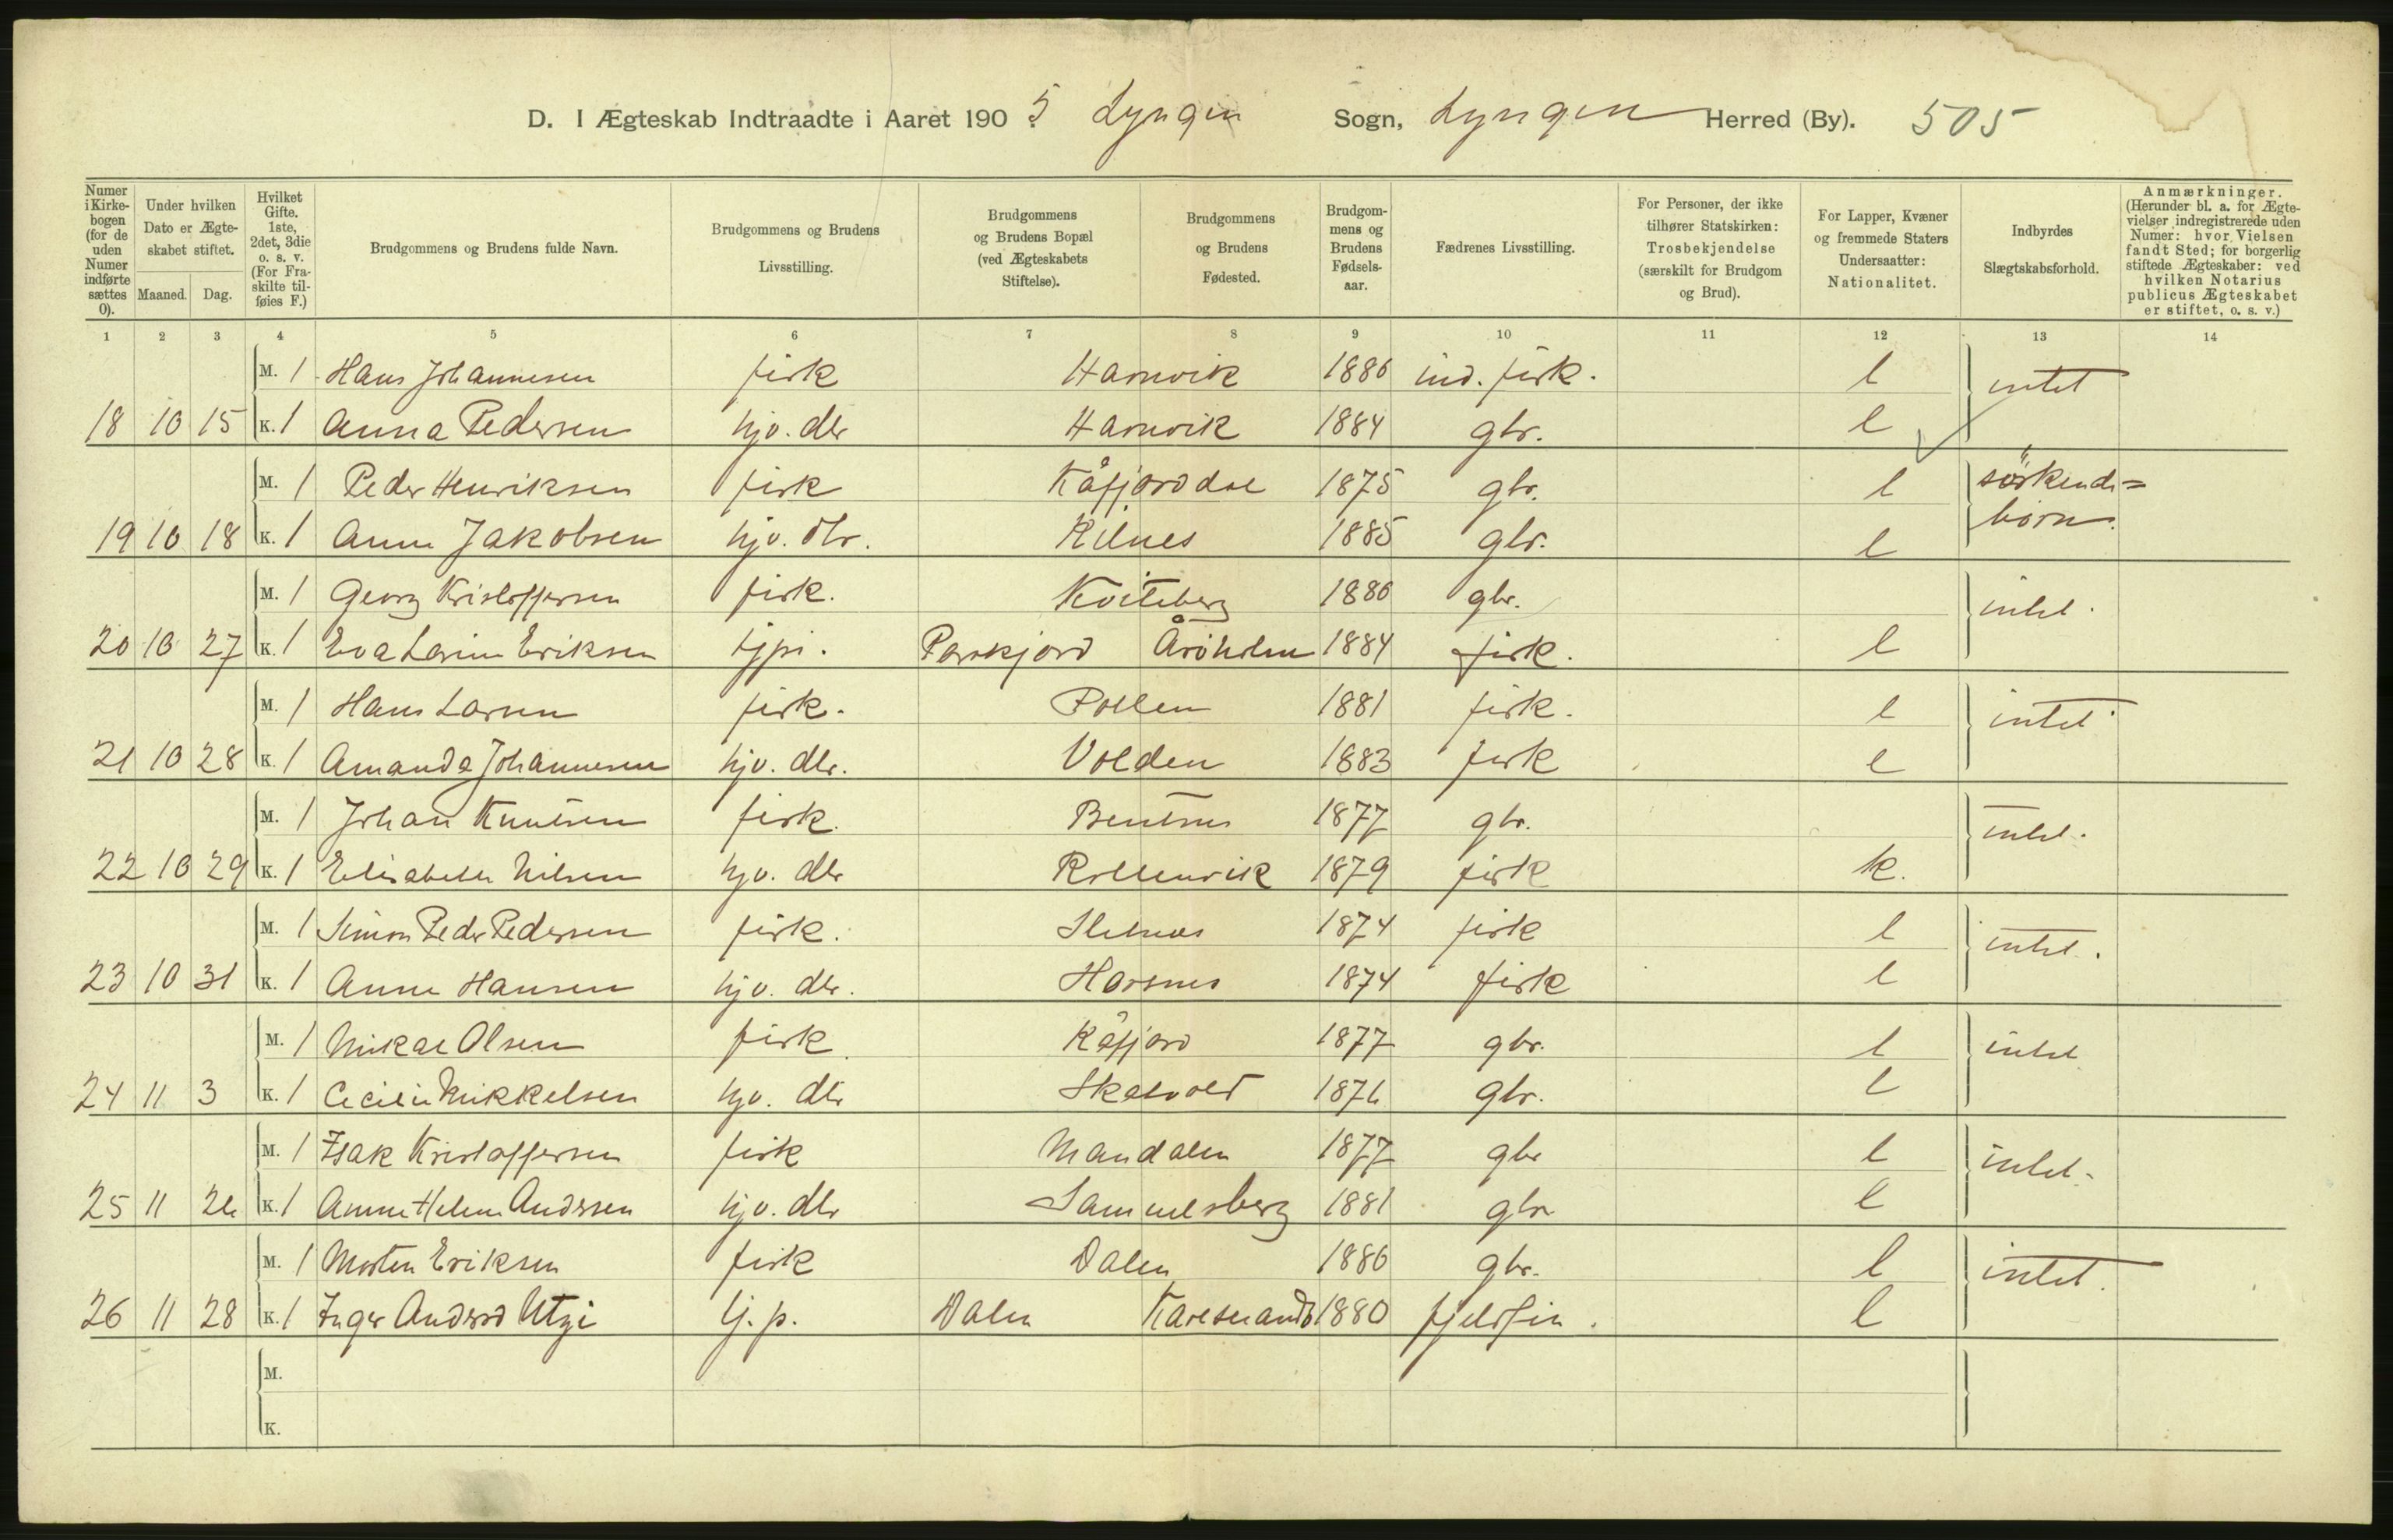 D. I Ægteskab Indtraadte i Aaret 190 5. Lyngen Sogn, Lyngen Herred (By). 505
Numer i Kirkebogen (for de uden Numer indførte sættes 0). | Under hvilken Dato er Ægteskabet stiftet. Maaned. Dag. | Hvilket Gifte. 1ste, 2det, 3die o. s. v. (For Fraskilte tilføies F.) | Brudgommens og Brudens fulde Navn. | Brudgommens og Brudens Livsstilling. | Brudgommens og Brudens Bopæl (ved Ægteskabets Stiftelse). | Brudgommens og Brudens Fødested. | Brudgommens og Brudens Fødselsaar. | Fædrenes Livsstilling. | For Personer, der ikke tilhører Statskirken: Trosbekjendelse (særskilt for Brudgom og Brud). | For Lapper, Kvæner og fremmede Staters Undersaatter: Nationalitet. | Indbyrdes Slægtskabsforhold. | Anmærkninger. (Herunder bl. a. for Ægtevielser indregistrerede uden Numer: hvor Vielsen fandt Sted; for borgerlig stiftede Ægteskaber: ved hvilken Notarius publicus Ægteskabet er stiftet, o. s. v.)
1 2 3 4 5 6 7 8 9 10 11 12 13 14
M. 1 Hans Johannesen fisk 1880 ind. fisk. l intet
18 10 15 K. 1 Anna Pedersen hjv. dtr 1884 gbr. l
M. 1 Peder Henriksen fisk Kåfjorddal 1875 gbr. l söskende=
19 10 18 K. 1 Anne Jakobsen hjv. dtr. 1885 gbr. l börn.
M. 1 Georg Kristoffersen fisk. Kviteberg 1880 gbr. intet.
20 10 27 K. 1 Eva Larine Eriksen tjpi. Aröholm 1884 fisk. l
M. 1 Hans Larsen fisk. Pollen 1881 fisk. l intet
21 10 28 K. 1 Amanda Johannesen hjv. dtr. Volden 1883 fisk l
M. 1 Johan Knutsen fisk. 1877 gbr. intet.
22 10 29 K. 1 Elisabeth Nilsen hjv. dtr Rottenvik 1879 fisk k.
M. 1 Simon Peder Pedersen fisk. 1874 fisk l intet.
23 10 31 K. 1 Anne Hansen hjv. dtr. Horsnes 1874 fisk l
M. 1 Mikal Olsen fisk. Kåfjord 1877 gbr. l intet
24 11 3 K. 1 Cecilie Mikkelsen hjv. dtr Skatvold 1876 gbr. l
M. 1 Isak Kristoffersen fisk Mandalen 1877 gbr l intet.
25 11 26 K. 1 Anne Helene Andersen hjv. dtr Samuelsberg 1881 gbr l
M. 1 Morten Eriksen fisk Dalen 1880 gbr. l intet.
26 11 28 K. 1 Inger Andersd Utzi tj. p. Dalen Karesuando 1880 fjeldfin. l
M.
K.